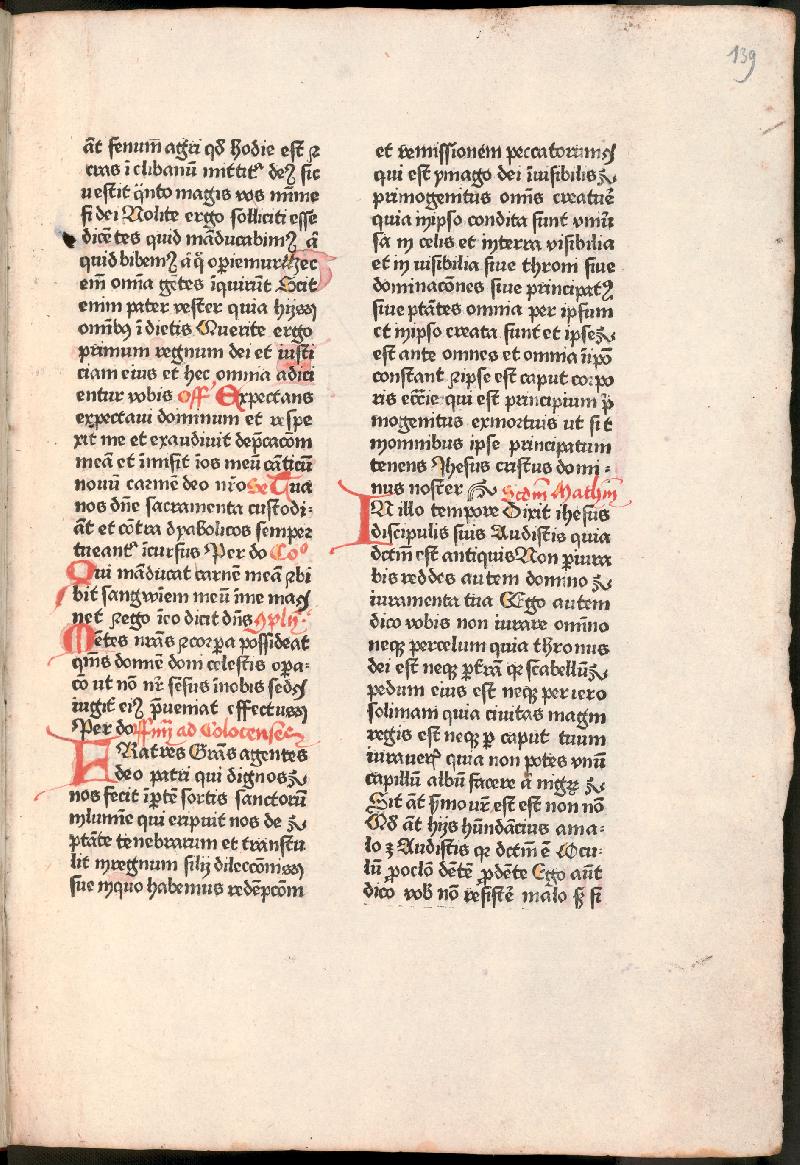 139
āt fenum̄ agri qd̄ hodie est ⁊
cras ī clibanū mittitᷣ deꝰ sic
uestit q̈nto magis vos mīme
fidei Nolite ergo solliciti esse
dicētes quid māducabimꝰ āt
quid bibemꝰ āt q̊ operiemur Hec
em̄ om̄ia gētes īquirūt Scit
enim pater vester quia hijs
om̄ibꝰ īdietis Querite ergo
primum regnum dei et iusti
ciam eius et hec omnia adici
entur vobis off Expectans
expectaui dominum et respe
xit me et exaudiuit dep̄cac̄om
meā et īmisit ī os meū cāticū
nouū carmē deo nr̄o Se Tua
nos dn̄e sacramenta custodi-
āt et cōtra dyabolicos semper
tueantᷣ īcursus Per do Coo
Qui māducat carnē meā ⁊bi
bit sangwīem meū ī me ma
net ⁊ ego ī eo dicit dn̄s 9plīj
Mētes nr̄as ⁊ corp̄a possideat
qm̄s domīe doni celestis op̄a-
c̄o ut nō nr̄ sēsus ī nobis sed
iugit eiꝰ p̄ueniat effectus
Per do ffrīj ad Colocenses
FRatres Gr̄as agentes
deo patri qui dignos
nos fecit ī p̄tē sortis sanctorū
in lumīe qui eripuit nos de
p̄tāte tenebrarum et transtu
lit in regnum filij dilecc̄onis
sue in quo habemus redēpc̄om
et remissionem peccatorum
qui est ymago dei īuisibilis
primogenitus om̄is creatuē
quia in ipso condita sunt vniu
sa in celis et in terra visibilia
et in uisibilia siue throni siue
dominac̄ones siue principatꝰ
siue p̄tātes omnia per ipsum
et in ipso creata sunt et ipse
est ante omnes et omnia ī ip̄o
constant ⁊ ipse est caput corpo
ris ecc̄ie qui est principium p̄
mogenitus ex mortuis ut sit
in omnibus ipse principatum
tenens Jhesus cristus domi-
nus noster Scdm̄ Mathm̄
IN illo tempore Dixit ihesus
discipulis suis Audistis quia
dctm̄ est antiquis Non p̱iura
bis reddes autem domino
iuramenta tua Ego autem
dico vobis non iurare om̄ino
neqꝫ per celum quia thronus
dei est neqꝫ ꝑ t̄rā qꝛ scabellū
pedum eius est neqꝫ per iero
solimam quia ciuitas magni
regis est neqꝫ ꝑ caput tuum
iuraueꝭ quia non potes vnū
capillū albū facere a nigꝝ
Sit āt s̄mo ur̄ est est non nō
Qd̄ āt hijs hūndācius a ma-
lo ꝫ Audistis qꝛ dctm̄ ē Ocu-
lū ꝓ oclō dētē ꝓ dēte Ego aūt
dico vob nō resistē malo sꝫ si